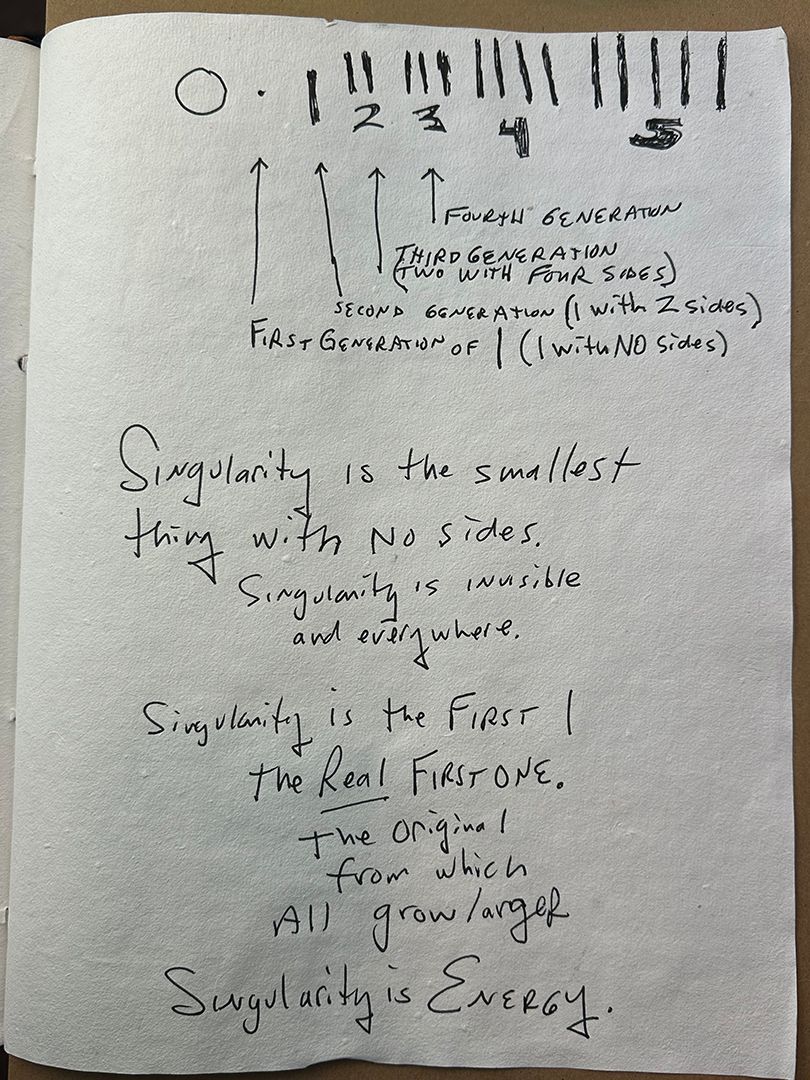 2 3 4 5
FOURTH GENERATION
THIRD GENERATION
(TWO WITH FOUR SIDES)
SECOND GENERATION (1 with 2 sides)
FIRST GENERATION OF 1 (1 with NO sides)
Singularity is the smallest
thing with NO sides.
Singularity is invisible
and everywhere.
Singularity is the FIRST 1
the Real FIRST ONE.
the original
from which
All grow larger
Singularity is ENERGY.